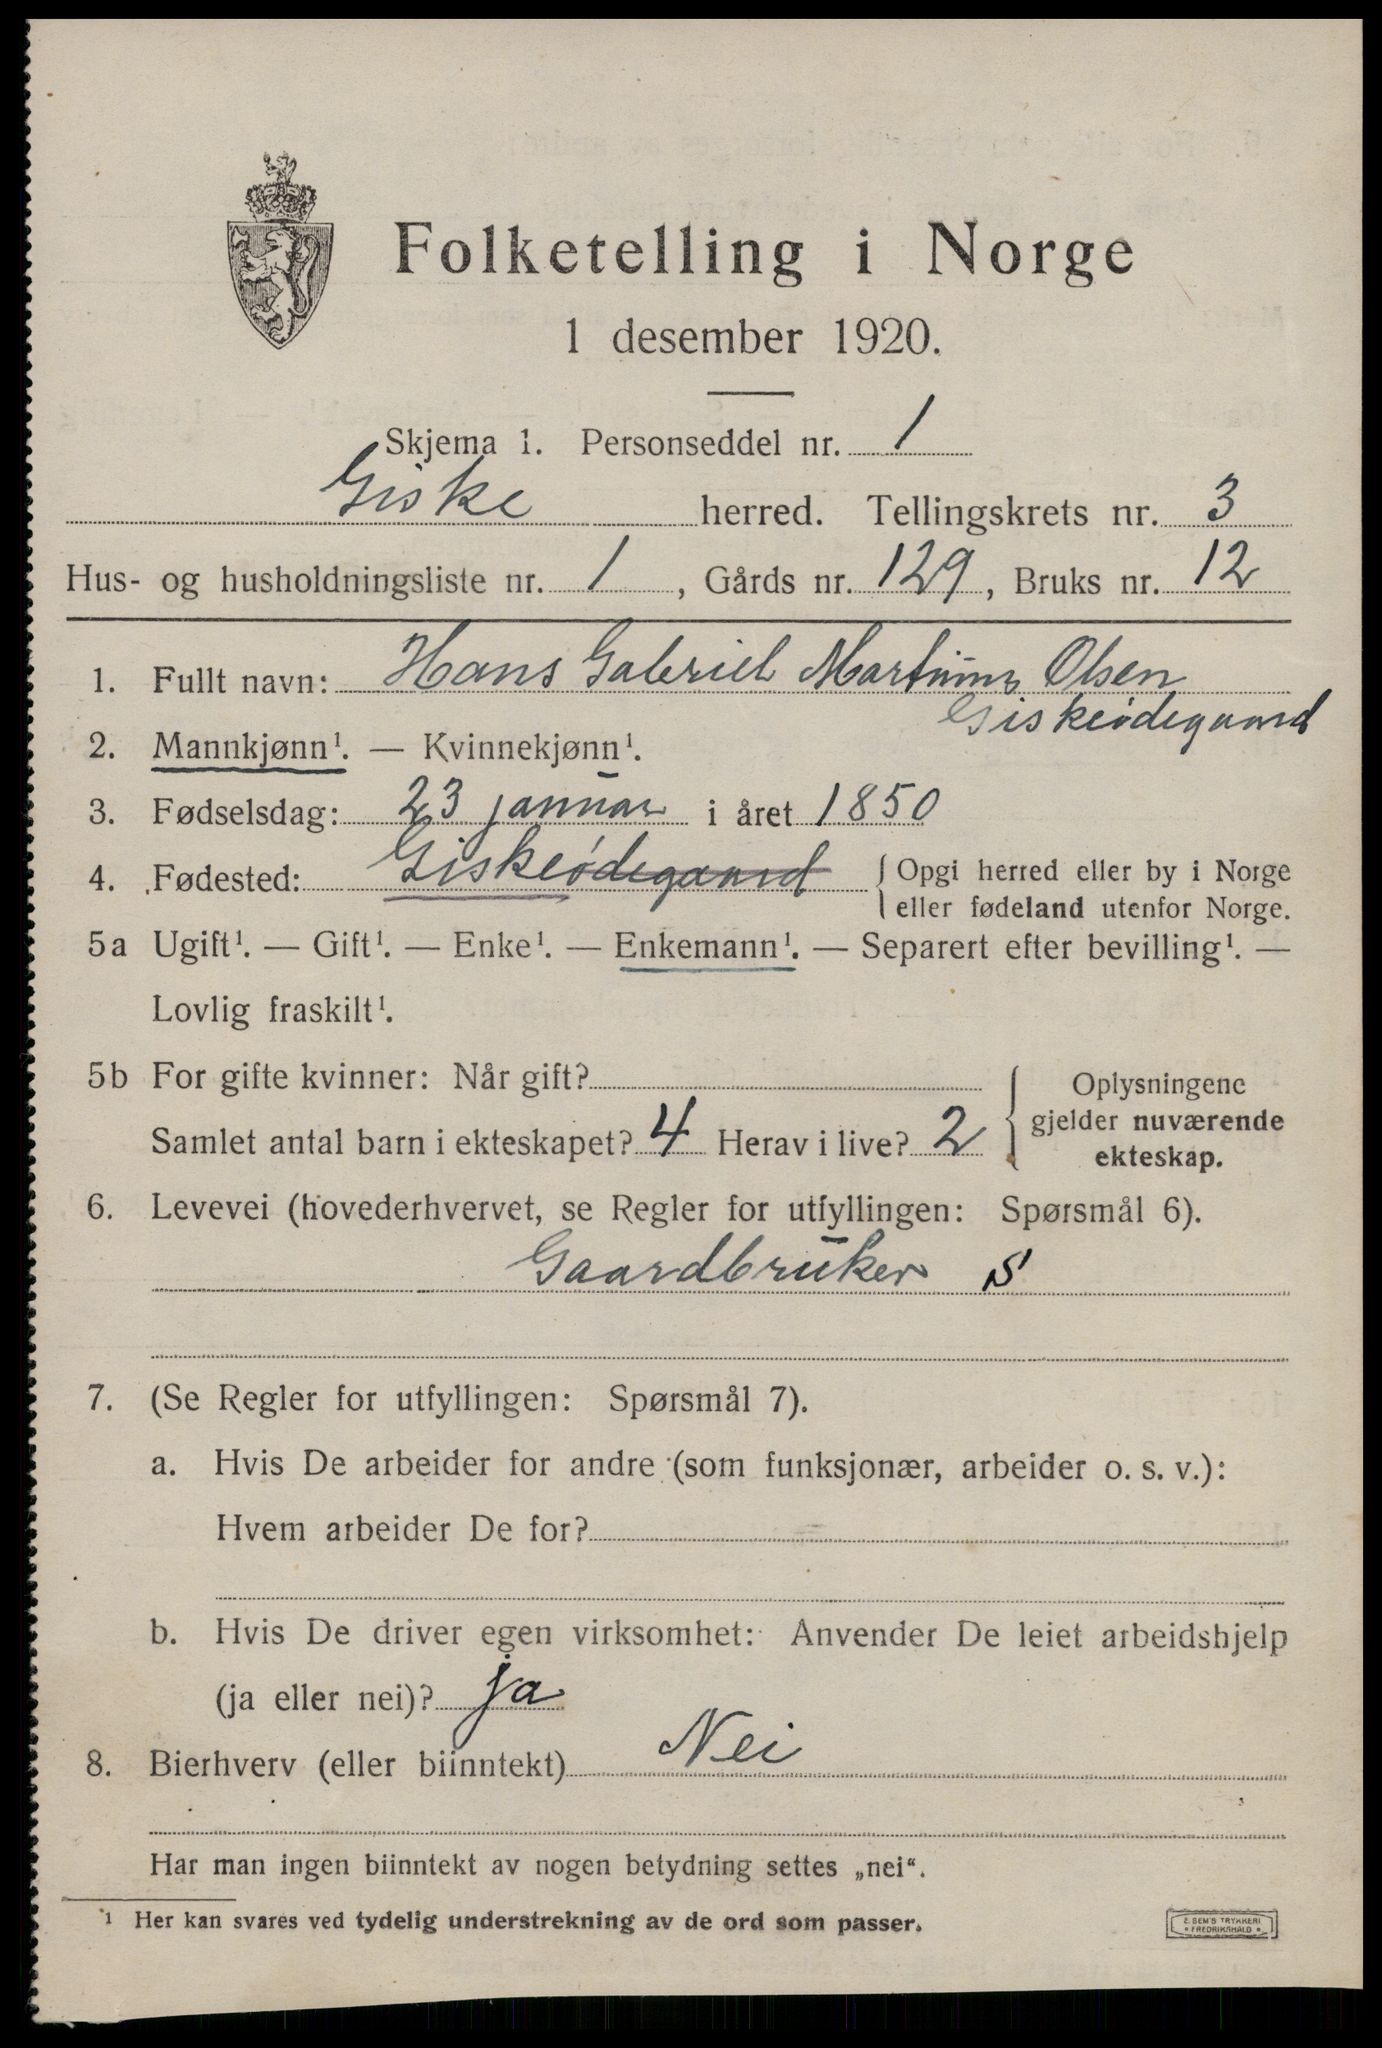 Folketelling i Norge
1 desember 1920.
Skjema 1. Personseddel nr. 1
Giske herred. Tellingskrets nr. 3
Hus- og husholdningsliste nr. 1, Gårds nr. 129, Bruks nr. 12
1. Fullt navn: Hans Gabriel Martinus Olsen
Giskeødegaard
2. Mannkjønn¹. — Kvinnekjønn¹.
3. Fødselsdag: 23 januar i året 1850
4. Fødested: Giskeødegaard { Opgi herred eller by i Norge
eller fødeland utenfor Norge.
5a Ugift¹. — Gift¹. — Enke¹. — Enkemann¹. — Separert efter bevilling¹. —
Lovlig fraskilt¹.
5b For gifte kvinner: Når gift?
Samlet antal barn i ekteskapet? 4 Herav i live? 2
{ Oplysningene
gjelder nuværende
ekteskap.
6. Levevei (hovederhvervet, se Regler for utfyllingen: Spørsmål 6).
Gaardbruker S
7. (Se Regler for utfyllingen: Spørsmål 7).
a. Hvis De arbeider for andre (som funksjonær, arbeider o. s. v.):
Hvem arbeider De for?
b. Hvis De driver egen virksomhet: Anvender De leiet arbeidshjelp
(ja eller nei)? ja
8. Bierhverv (eller biinntekt) Nei
Har man ingen biinntekt av nogen betydning settes „nei“.
¹ Her kan svares ved tydelig understrekning av de ord som passer.
E. SEM'S TRYKKERI
• FREDRIKSHALD •